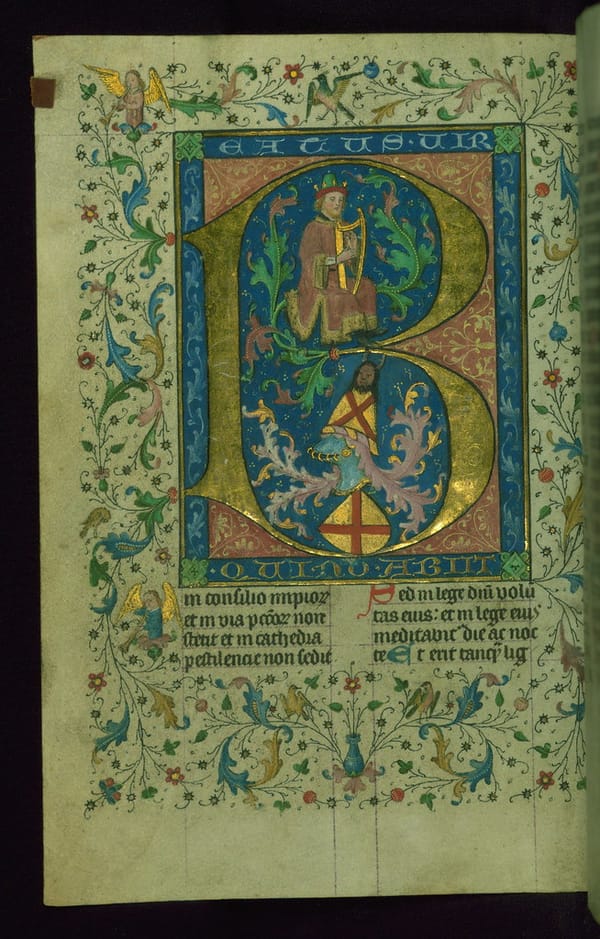 B
EATUS·VIR
QUI NO ABIIT
in consilio impioꝝ
et in via pctoꝝ non
stetit et in cathedra
pestilencie non sedit
Sed in lege dn̄i volū
tas eius: et in lege eius
meditabit᷑ die ac noc
te Et erit tanqꝫ lig